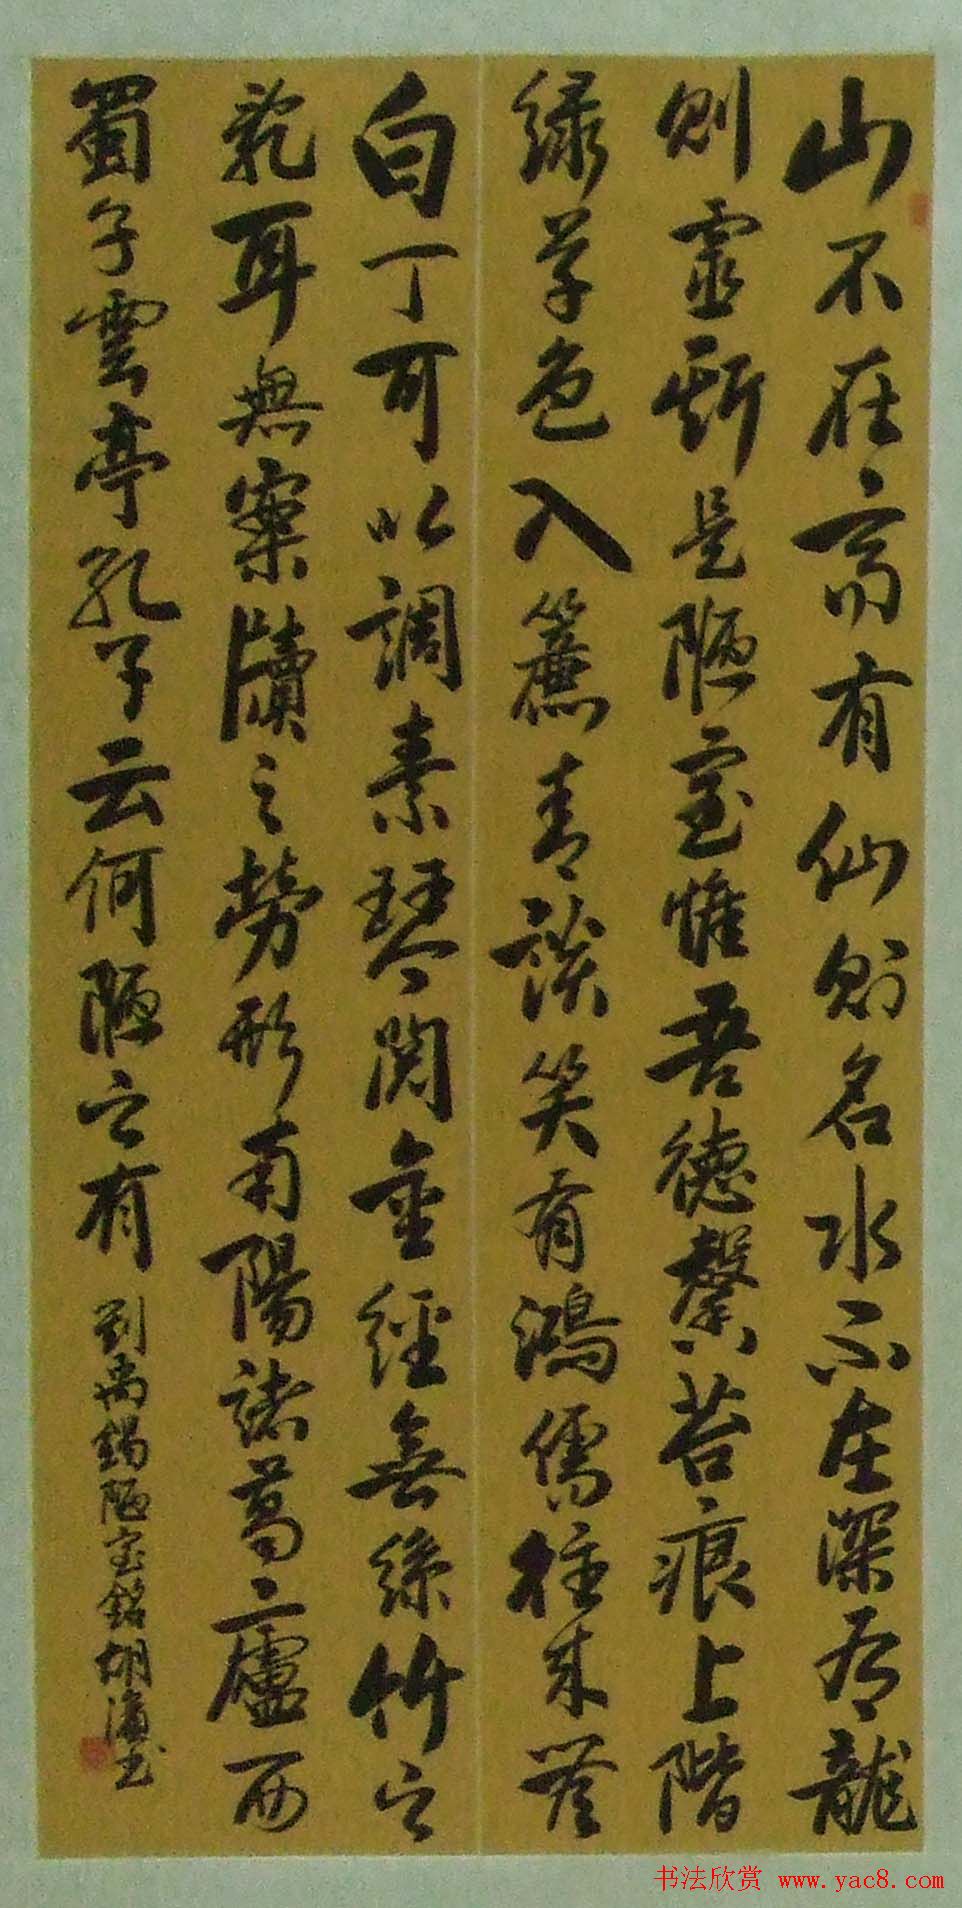 山不在高有仙則名水不在深有龍
則靈斯是陋室惟吾德馨苔痕上階
綠草色入簾青談笑有鴻儒往來無
白丁可以調素琴閱金經無絲竹之
亂耳無案牘之勞形南陽諸葛廬西
蜀子雲亭孔子云何陋之有
劉禹錫陋室銘胡書
书法欣赏 www.yac8.com